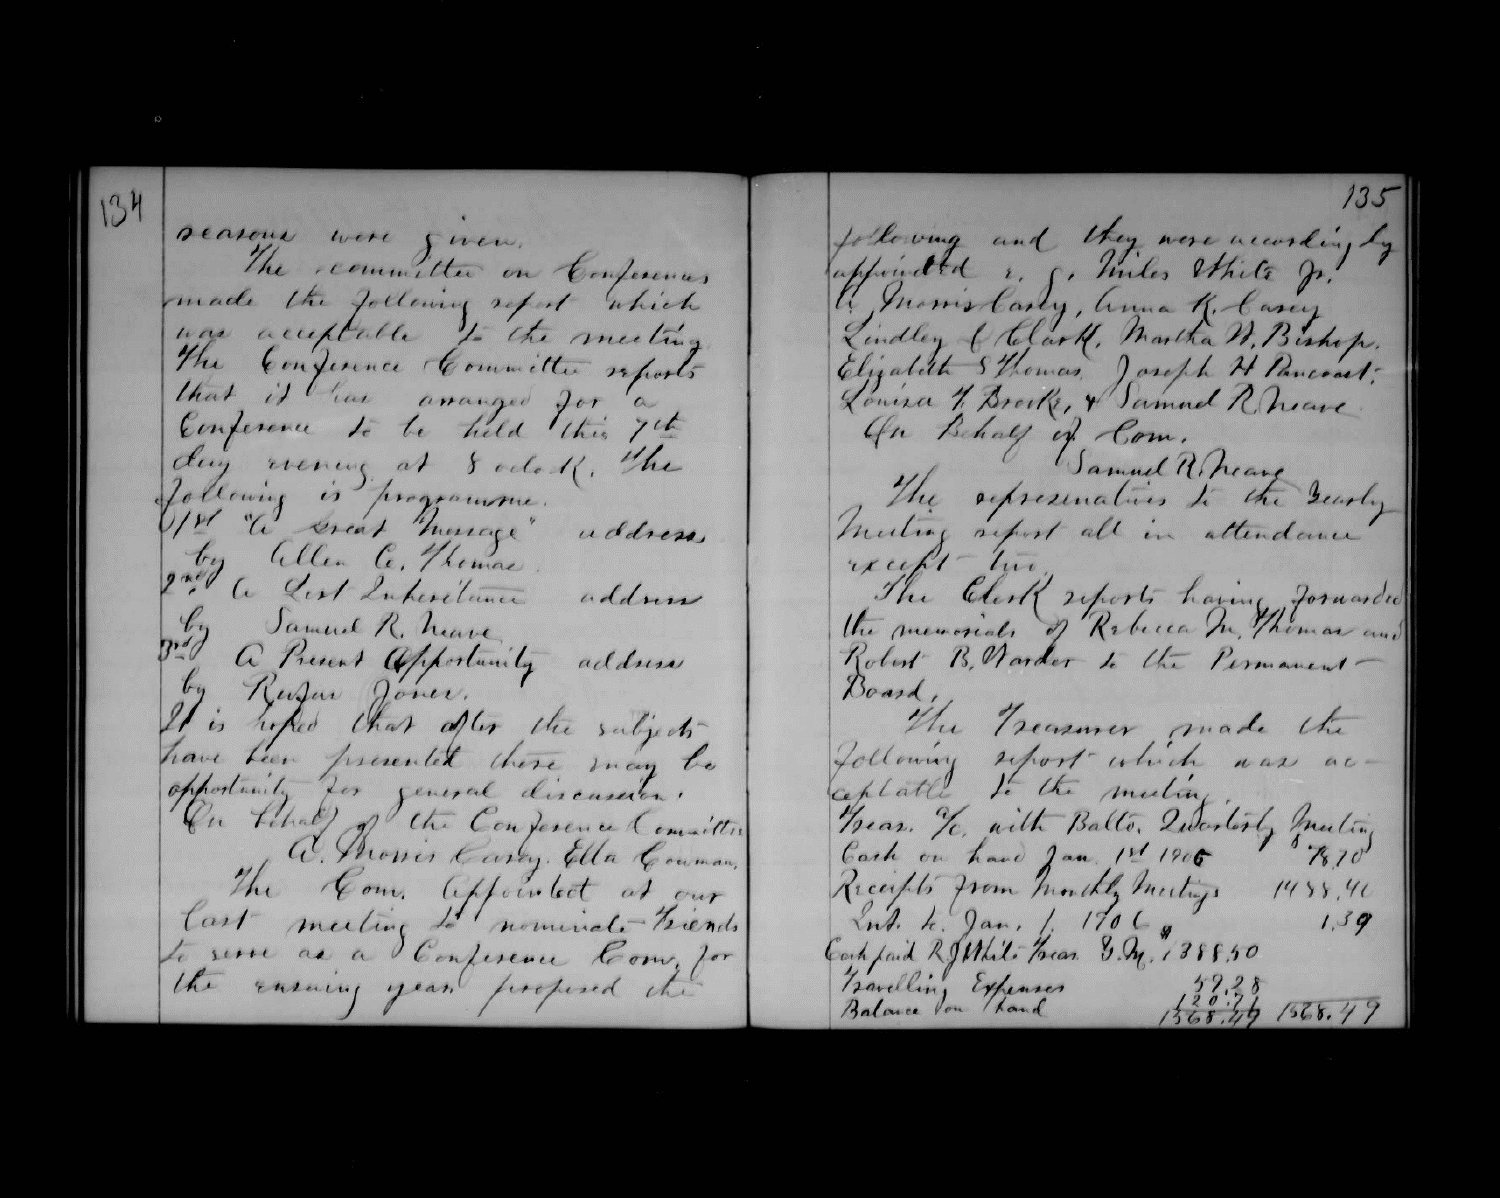 134
seasons were given.
The committee on Conferences
made the following report which
was acceptable to the meeting.
The Conference Committee reports
that it has arranged for a
Conference to be held this 7th
day evening at 8 oclock. The
following is programme.
1st "A Great Message" address
by Allen C. Thomas.
2nd. A Lost Inheritance address
by Samuel R. Neave
3rd A Present Opportunity address
by Rufus Jones.
It is hoped that after the subjects
have been presented there may be
opportunity for general discussion.
On behalf of the Conference Committee
A. Morris Carey. Ella Cowman.
The Com. Appointed at our
last meeting to nominate Friends
to serve as a Conference Com. for
the ensuing year proposed the
135
following and they were accordingly
appointed e. g. Miles White Jr.
A. Morris Carey, Anna K. Carey
Lindley Clark, Martha W. Bishop.
Elizabeth S Thomas, Joseph H Pancoast,
Louisa T. Brooke, & Samuel R Neave
On Behalf of Com.
Samuel R. Neave
The representatives to the Yearly
Meeting report all in attendance
except two.
The Clerk reports having forwarded
the memorials of Rebecca M. Thomas and
Robert B. Warder to the Permanent
Board.
The Treasurer made the
following report which was ac-
ceptable to the meeting.
Treas. a/c. with Balto. Quarterly Meeting
Cash on hand Jan. 1st 1906 78.70
Receipts from Monthly Meetings 1488.40
Int. to Jan. 1. 1906 1.39
Cash paid R J White Treas. Y. M. $1388.50
Travelling Expenses 59.28
Balance on hand 120.71
1568.49 1568.49